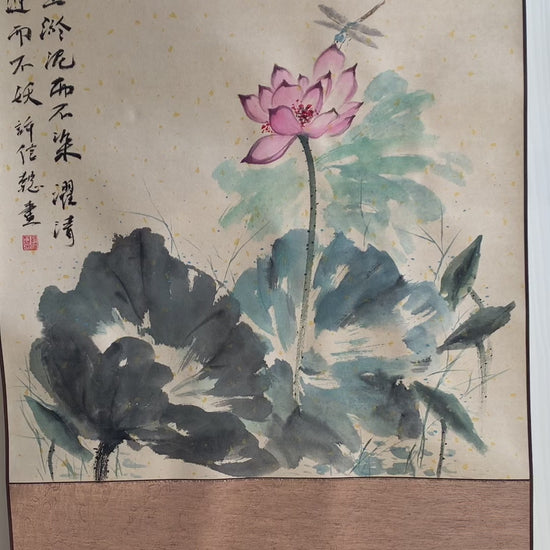 淤泥而不染 濯清
而不妖 許信畫